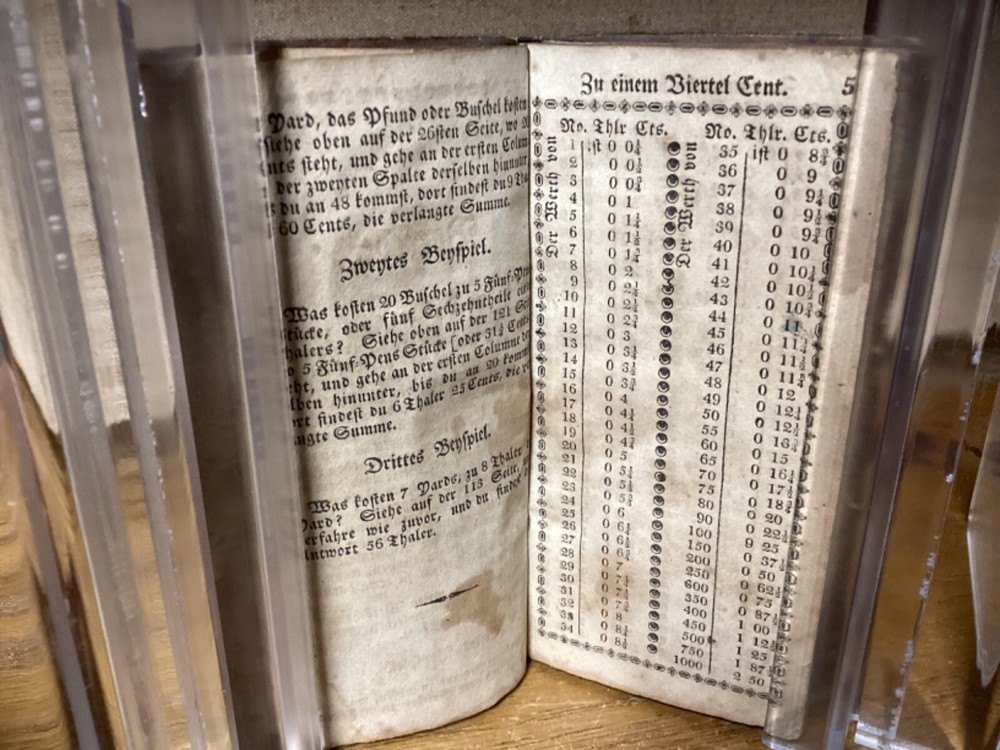 Yard, das Pfund oder Buschel kosten
siehe oben auf der 26sten Seite, wo 20
nts steht, und gehe an der ersten Colum
der zweyten Spalte derselben hinunter,
s du an 48 kommst, dort findest du 9 Tha
60 Cents, die verlangte Summe.
Zweytes Beyspiel.
Was kosten 20 Buschel zu 5 Fünf-Pens
tücke, oder fünf Sechzehntheile eines
halers? Siehe oben auf der 121 Sei
o 5 Fünf-Pens Stücke [oder 31¼ Cents
ht, und gehe an der ersten Columne de
lben hinunter, bis du an 20 komm
ort findest du 6 Thaler 25 Cents, die ve
angte Summe.
Drittes Beyspiel.
Was kosten 7 Yards, zu 8 Thaler
Yard? Siehe auf der 113 Seite,
erfahre wie zuvor, und du findest
Antwort 56 Thaler.
Zu einem Viertel Cent. 5
No. Thlr Cts. No. Thlr. Cts.
Der Werth von
Der Werth von
1 ist 0 0¼ 35 ist 0 8¾
2 0 0½ 36 0 9
3 0 0¾ 37 0 9¼
4 0 1 38 0 9½
5 0 1¼ 39 0 9¾
6 0 1½ 40 0 10
7 0 1¾ 41 0 10¼
8 0 2 42 0 10½
9 0 2¼ 43 0 10¾
10 0 2½ 44 0 11
11 0 2¾ 45 0 11¼
12 0 3 46 0 11½
13 0 3¼ 47 0 11¾
14 0 3½ 48 0 12
15 0 3¾ 49 0 12¼
16 0 4 50 0 12½
17 0 4¼ 55 0 16¾
18 0 4½ 60 0 15
19 0 4¾ 65 0 16¼
20 0 5 70 0 17½
21 0 5¼ 75 0 18¾
22 0 5½ 80 0 20
23 0 5¾ 90 0 22½
24 0 6 100 9 25
25 0 6¼ 150 0 37½
26 0 6½ 200 0 50
27 0 6¾ 250 0 62½
28 0 7 600 0 75
29 0 7¼ 350 0 87½
30 0 7½ 400 1 00
31 0 7¾ 450 1 12½
32 0 8 500 1 25
33 0 8¼ 750 1 87½
34 0 8½ 1000 2 50